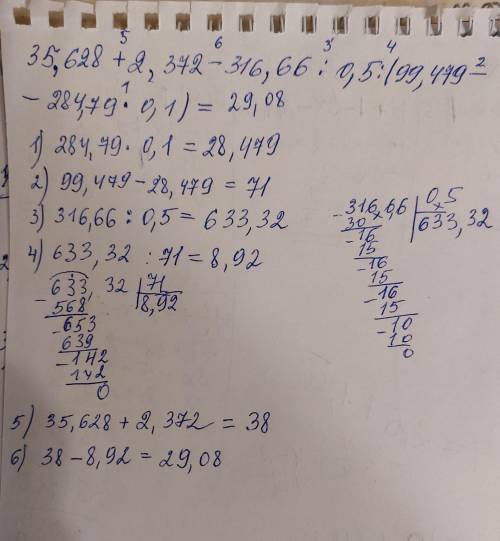 35,628 + 2,372 - 316,66 : 0,5 : (99,479 -
5 6 3 4 2
- 284,79 · 0,1) = 29,08
1
1) 284,79 · 0,1 = 28,479
2) 99,479 - 28,479 = 71
3) 316,66 : 0,5 = 633,32
4) 633,32 : 71 = 8,92
- 633,32 | 71
568 8,92
- 653
639
- 142
142
0
- 316,66 | 0,5
30 633,32
- 16
15
- 16
15
- 16
15
- 10
10
0
5) 35,628 + 2,372 = 38
6) 38 - 8,92 = 29,08